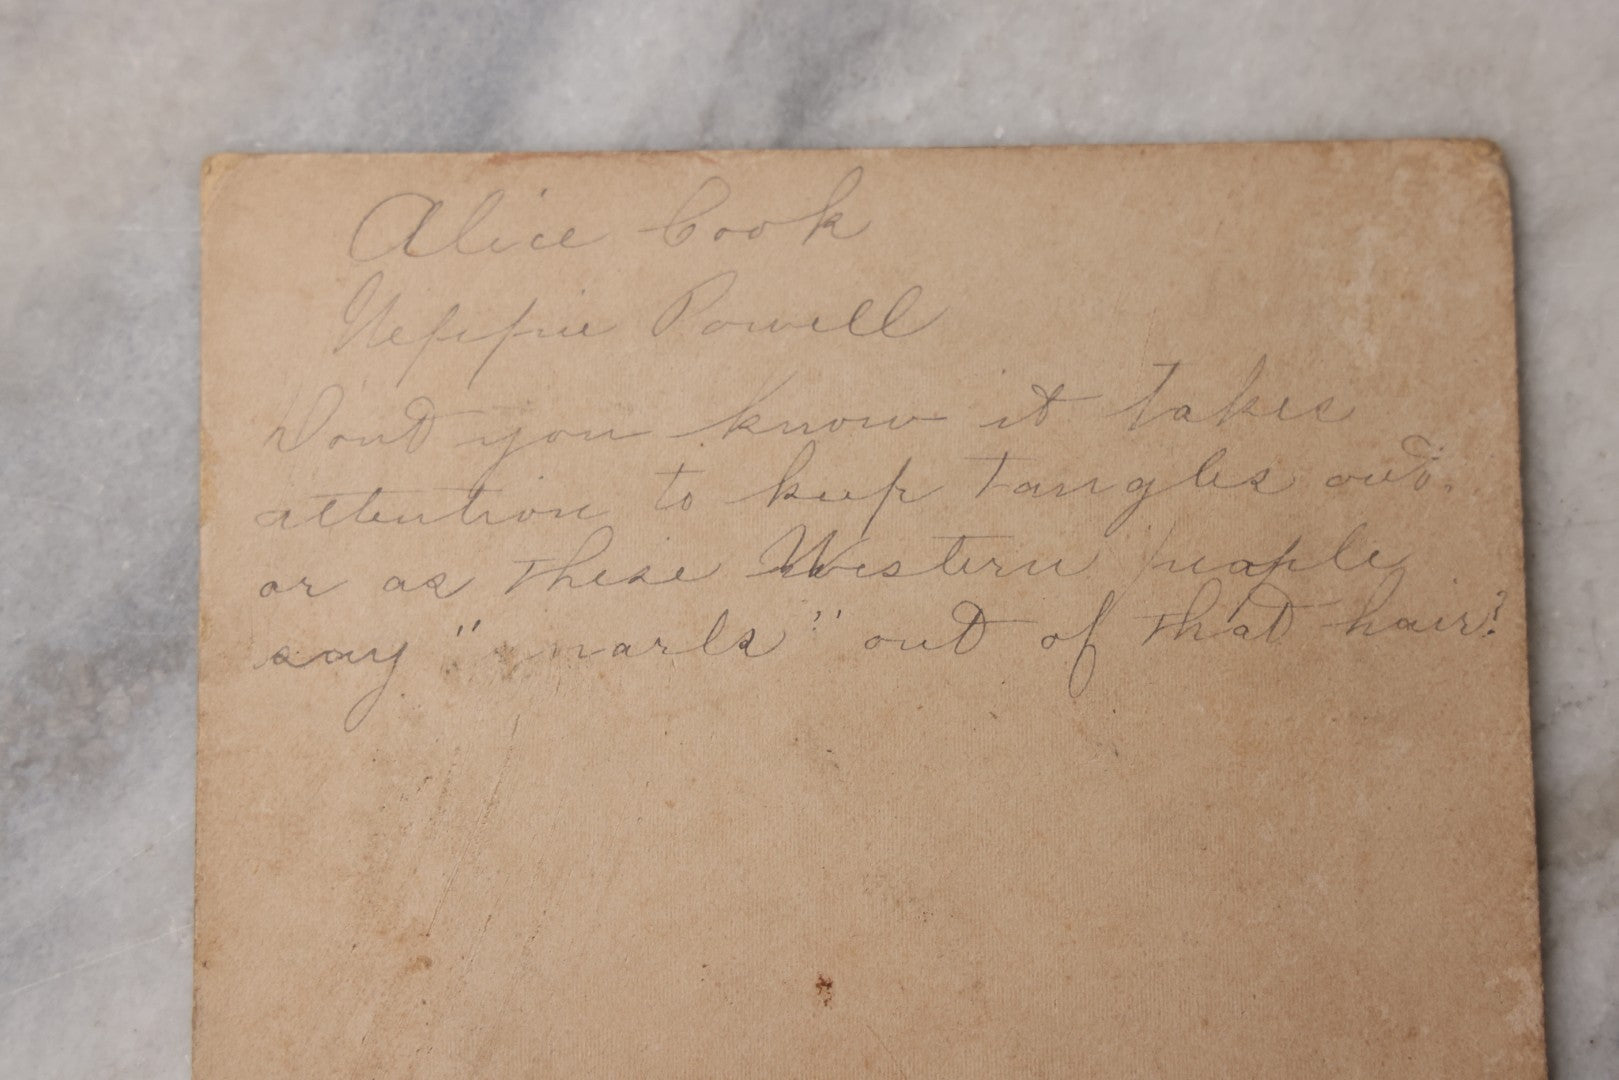 Alice Cook
Neppie Powell
Dont you know it takes
attention to keep tangles out.
or as these Western people
say "snarls" out of that hair?